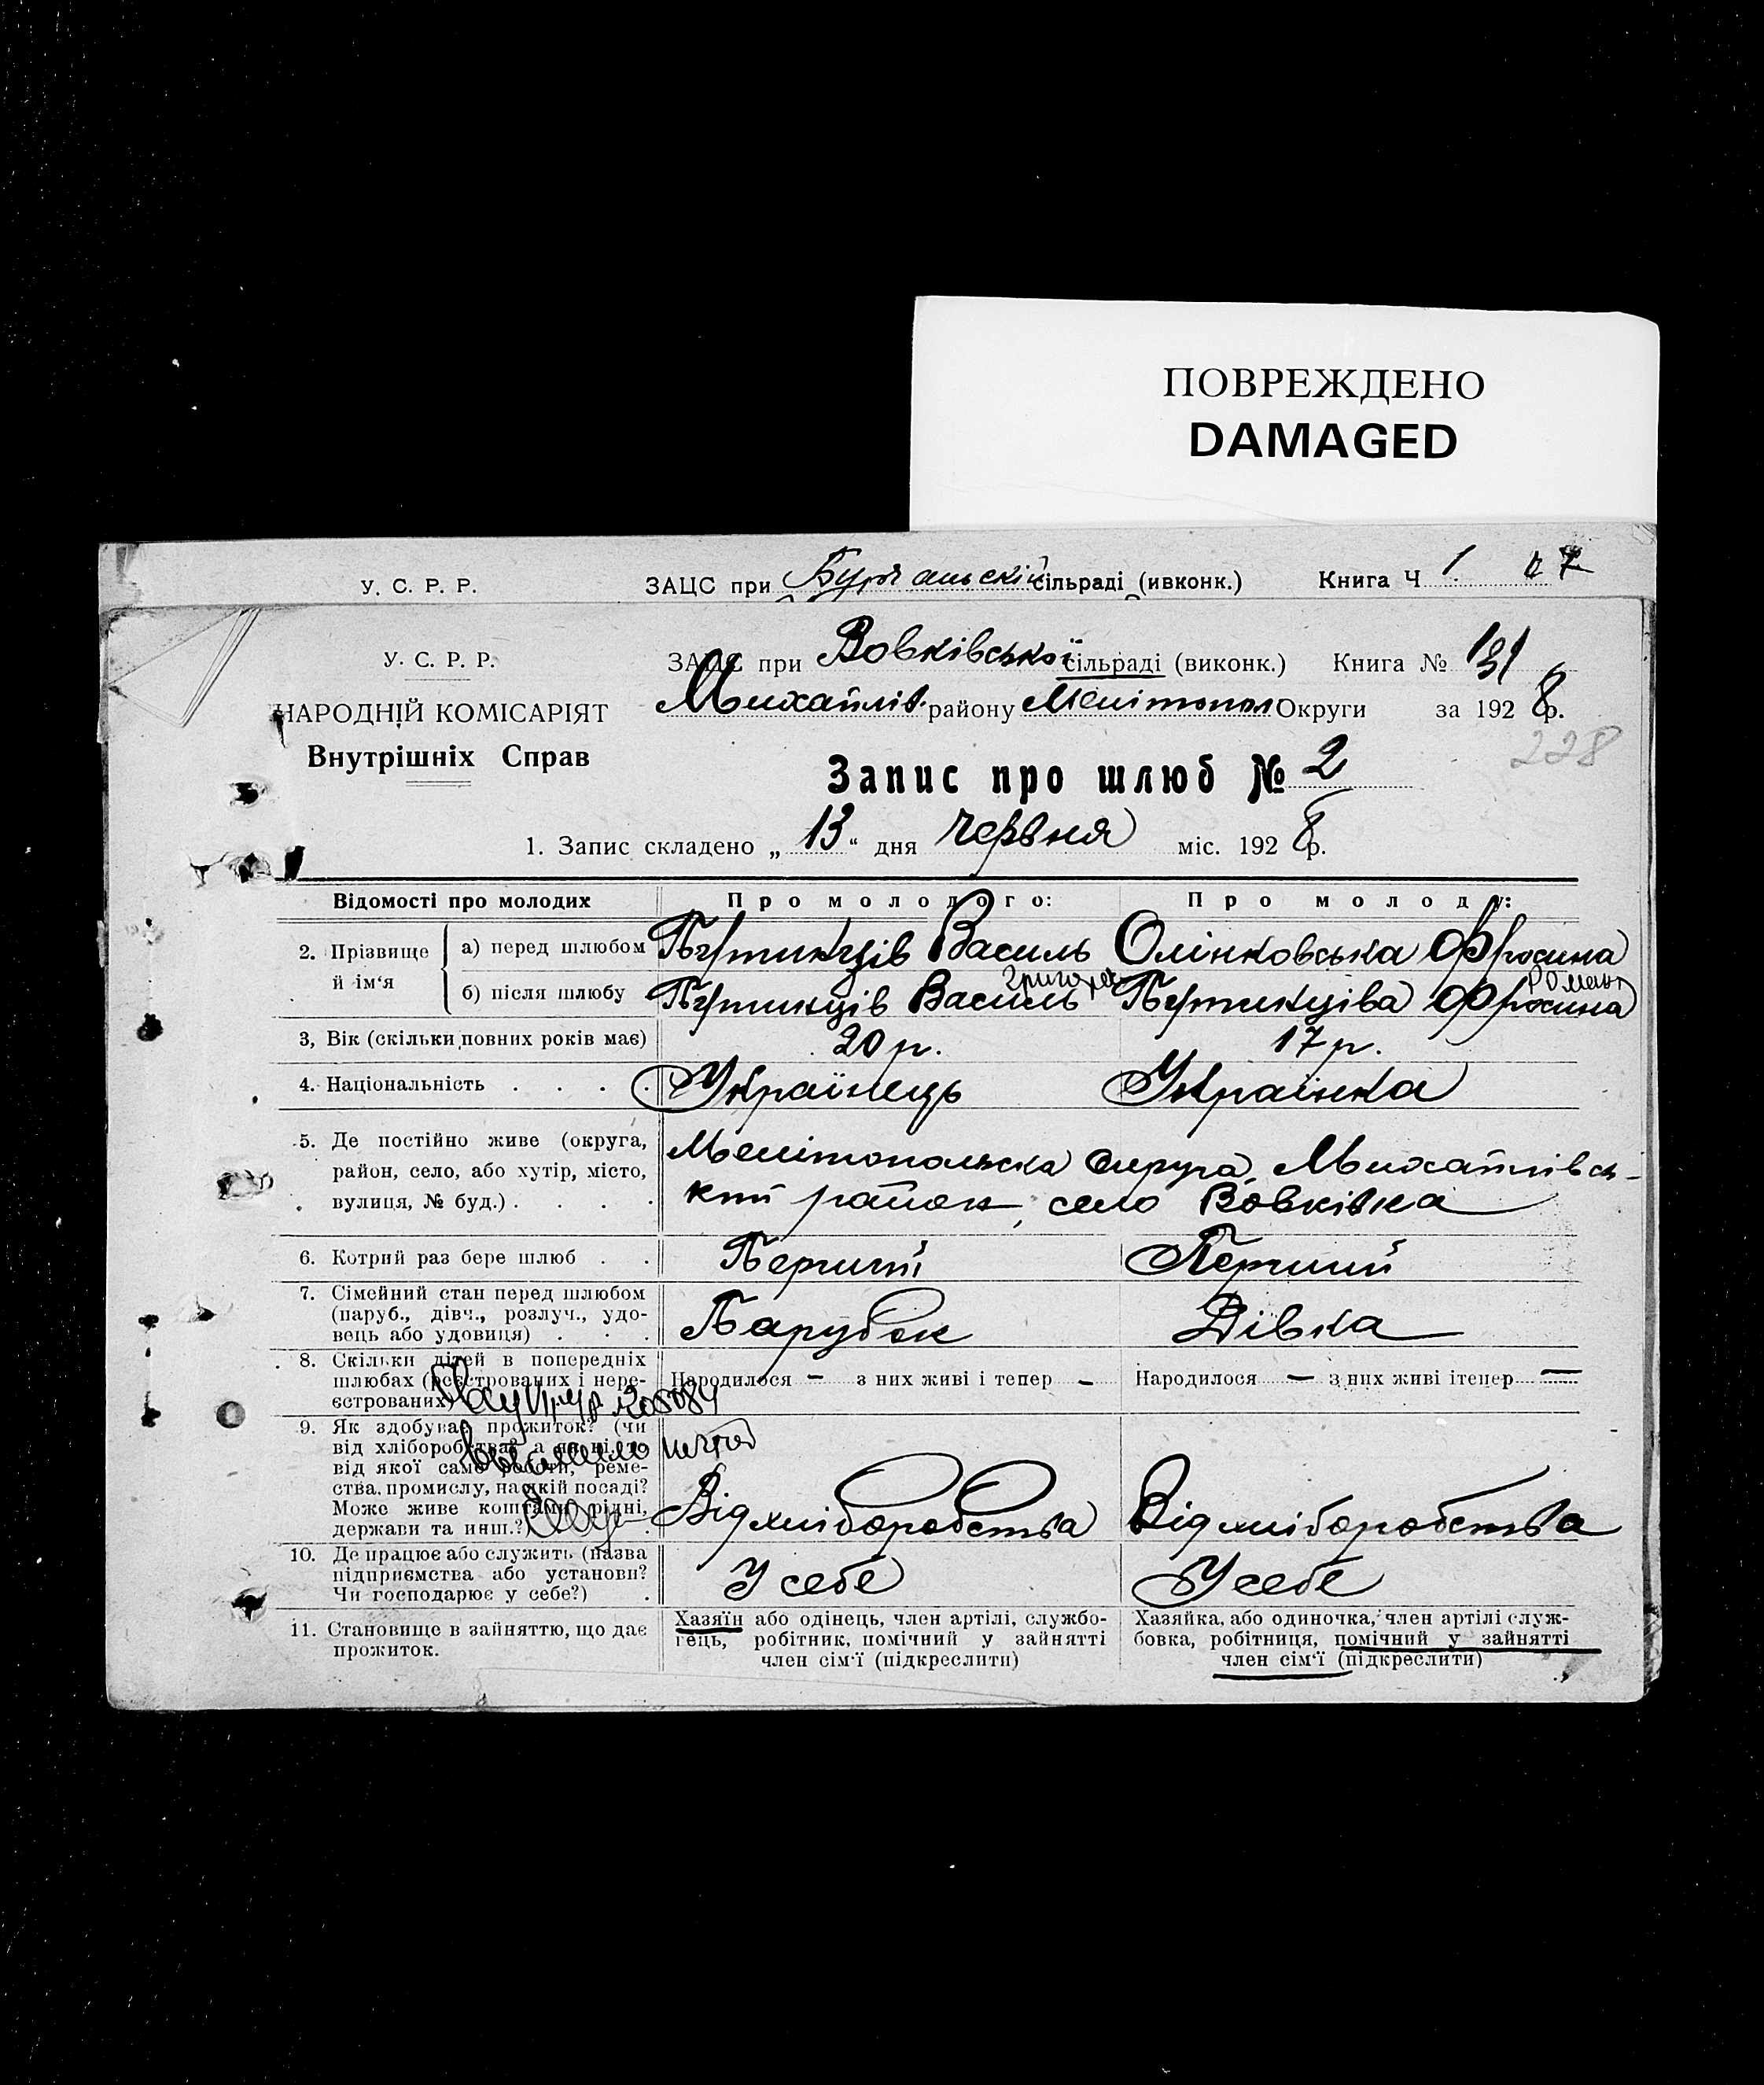 ПОВРЕЖДЕНО
DAMAGED
У. С. Р. Р. ЗАЦС при сільраді (ивконк.) Книга Ч 1.
У. С. Р. Р. ЗАЦС при Вовківської сільраді (виконк.) Книга № 131
НАРОДНІЙ КОМІСАРІЯТ Михайлів. району Мелітопол Округи за 1928 р.
228
Внутрішніх Справ
Запис про шлюб № 2
1. Запис складено „ 13 “ дня червня міс. 1928 р.
Відомості про молодих Про молодого: Про молоду:
2. Прізвище й ім‘я
а) перед шлюбом Василь Олінковська Фросина
Григорів Роман
б) після шлюбу Василь Фросина
3, Вік (скільки повних років має) 20 р. 17 р.
4. Національність . . . . Українець Українка
5. Де постійно живе (округа, Мелітопольська округа, Михайлівсь-
район, село, або хутір, місто, кий район, село Вовківка
вулиця, № буд.) . . . .
6. Котрий раз бере шлюб . . Перший Перший
7. Сімейний стан перед шлюбом
(паруб., дівч., розлуч., удо- Парубок Дівка
вець або удовиця) . . .
8. Скільки дітей в попередніх
шлюбах (реєстрованих і нере- Народилося – з них живі і тепер – Народилося – з них живі ітепер –
єстрованих)
9. Як здобував прожиток? (чи
від хліборобства? а як ні, то
від якої саме роботи, реме-
ства, промислу, на якій посаді?
Може живе коштами рідні, Від хліборобства Від хліборобства
держави та инш.?)
10. Де працює або служить (назва
підприємства або установи? У себе У себе
Чи господарює у себе?) .
11. Становище в зайняттю, що дає
прожиток.
Хазяїн або одінець, член артілі, службо-
гець, робітник, помічний у зайнятті
член сім‘ї (підкреслити)
Хазяйка, або одиночка, член артілі служ-
бовка, робітниця, помічний у зайнятті
член сім‘ї (підкреслити)